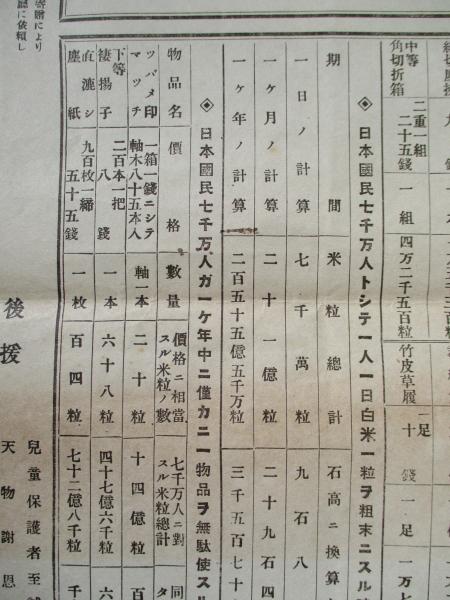 中等
角切折箱
二重一組
二十五錢
一組
四万二千五百粒
竹皮草履
一足
十錢
一足
一万七
◈ 日本國民七千万人トシテ一人一日白米一粒ヲ粗末ニスル
期間
米粒總計
石高ニ換算
一日ノ計算
七千萬粒
九石八
一ヶ月ノ計算
二十一億粒
二十九石四
一ヶ年ノ計算
二百五十五億五千万粒
三千五百七十
◈ 日本國民七千万人ガ一ケ年中ニ僅カニ一物品ヲ無駄使スル
物品名
價格
數量
價格ニ相當スル米粒ノ數
七千万人ニ對スル米粒總計
同
ツバメ印
マッチ
一箱一錢ニシテ
軸木八十五本入
軸一本
二十粒
十四億粒
百
下等
棲揚子
二百本一把
八錢
一本
六十八粒
四十七億六千粒
六
直漉シ
塵紙
九百枚一締
五十五錢
一枚
百四粒
七十二億八千粒
千
後援
兒童保護者至誠
天物謝恩
寄贈により
に依頼し